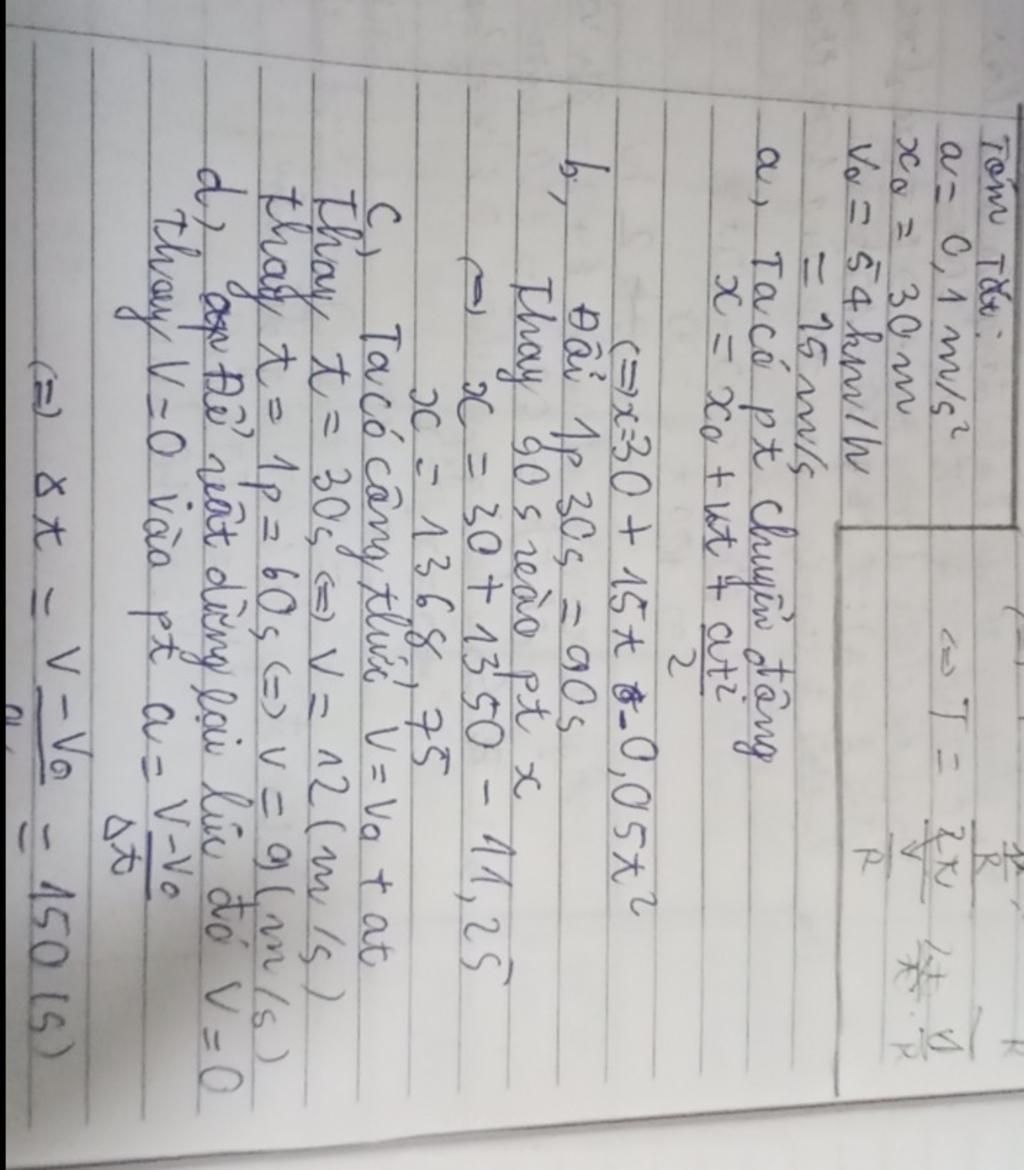 Tóm Tắt:
a = 0,1 m/s²
x₀ = 30 m
V₀ = 54 km/h
= 15 m/s
⇔ T =
a, Ta có pt chuyển động
x = x₀ + vt + at²/2
(=) x = 30 + 15t - 0,05t²
b, Đổi 1p 30s = 90s
Thay 90s vào pt x
(=) x = 30 + 1350 - 11,25
x = 1368,75
c, Ta có công thức V = V₀ + at
Thay t = 30s (=) V = 12 (m/s)
thay t = 1p = 60s (=) V = 9 (m/s)
d, Để vật dừng lại lúc đó V = 0
thay V = 0 vào pt a = V-V₀/Δt
(=) Δt = V-V₀/a = 150 (s)